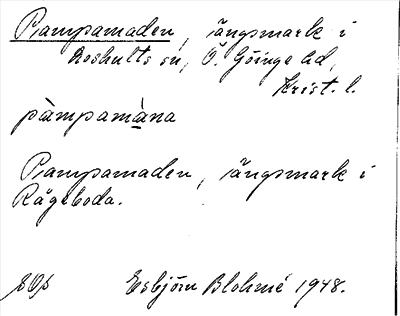 Pampamaden, ängsmark i
Loshults sn, Ö. Göinge hd,
Krist. l.
pàmpamàna
Pampamaden, ängsmark i
Rågeboda.
Esbjörn Blohmé 1948.